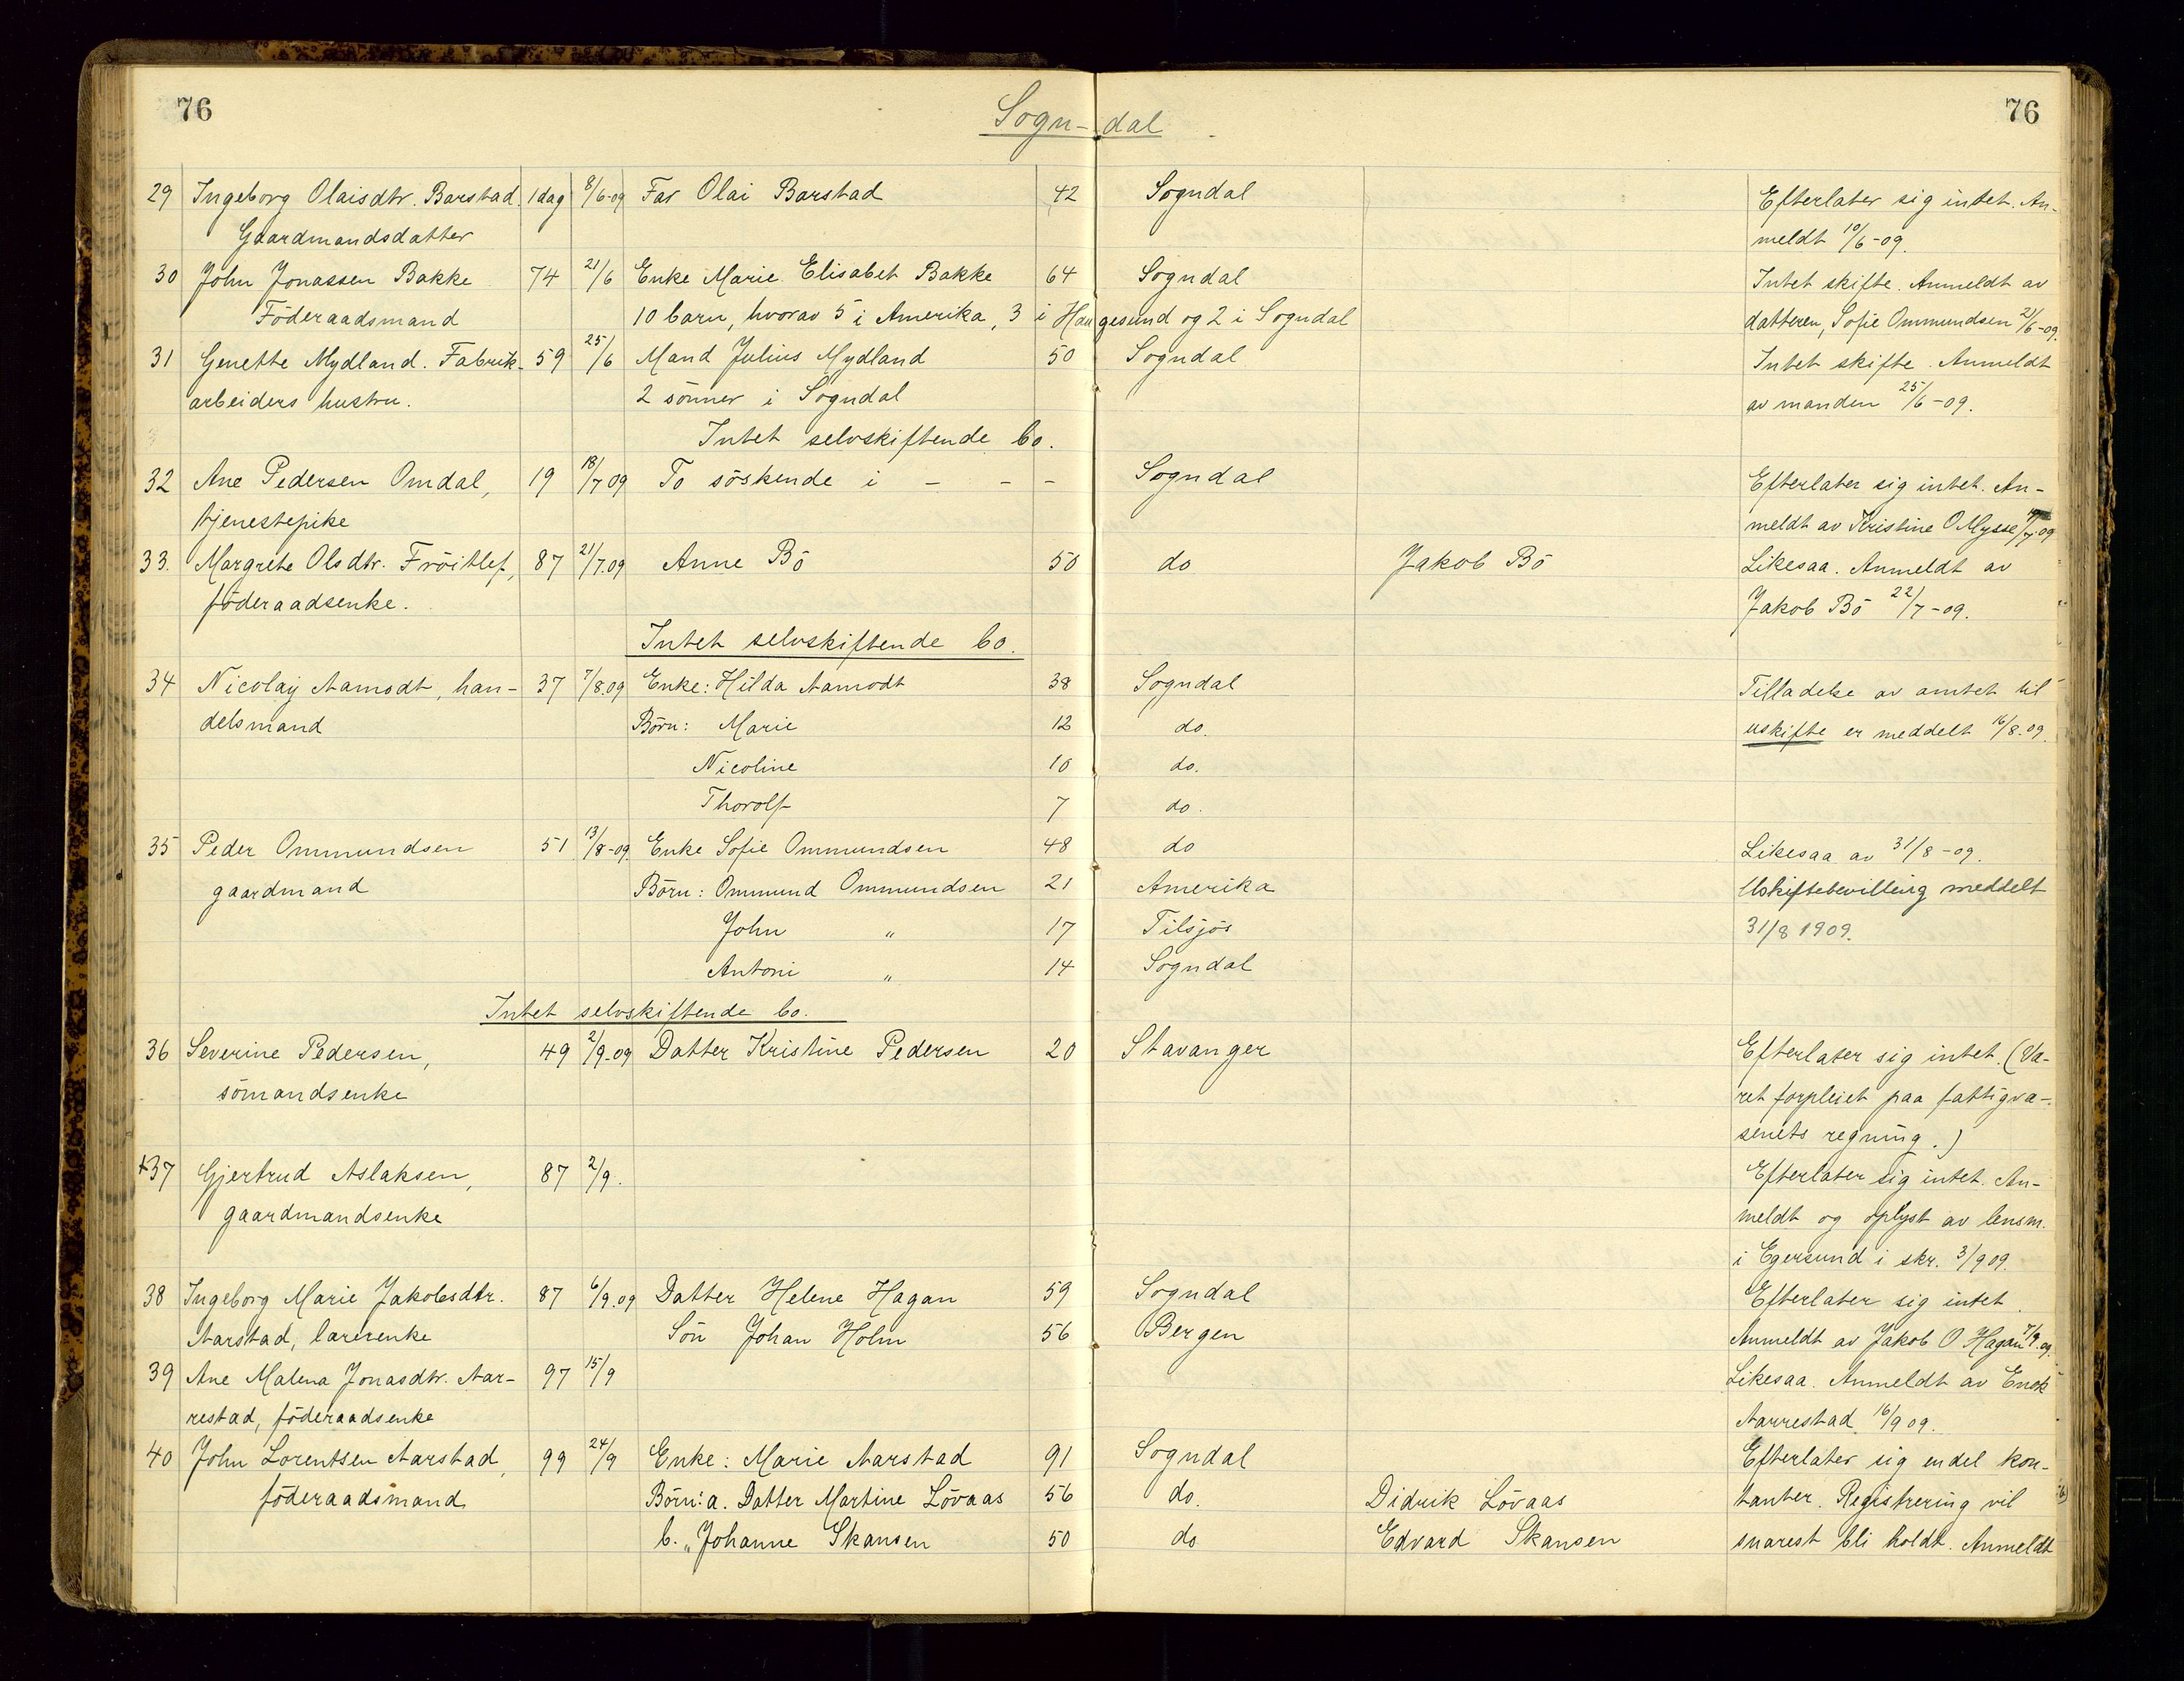 76
Sogn-dal
76
29 Ingeborg Olaisdtr. Barstad. 1 dag 8/6-09 Far Olai Barstad 42 Sogndal Efterlater sig intet. An-
Gaardmandsdatter meldt 10/6-09.
30 John Jonassen Bakke 74 21/6 Enke Marie Elisabet Bakke 64 Sogndal Intet skifte. Anmeldt av
Föderaadsmand 10 barn, hvorav 5 i Amerika, 3 i Haugesund og 2 i Sogndal datteren, Sofie Ommundsen 21/6-09.
31 Genette Mydland. Fabrik- 59 25/6 Mand Julius Mydland 50 Sogndal Intet skifte. Anmeldt
arbeiders hustru. 2 sönner i Sogndal av manden 25/6-09.
Intet selvskiftende bo.
32 Ane Pedersen Omdal, 19 18/7 09 To söskende i - - - Sogndal Efterlater sig intet. An-
tjenestepike meldt av Kristine O Mysse /7-09
33. Margrete Olsdtr. Fröitlef, 87 21/7.09 Anne Bö 50 do Jakob Bö Likesaa. Anmeldt av
föderaadsenke. Jakob Bö 22/7-09.
Intet selvskiftende bo.
34 Nicolaij Aamodt, han- 37 7/8.09 Enke: Hilda Aamodt 38 Sogndal Tilladelse av amtet til
delsmand Börn: Marie 12 do. uskifte er meddelt 16/8-09.
Nicoline 10 do.
Thorolf 7 do.
35 Peder Ommundsen 51 13/8-09 Enke Sofie Ommundsen 48 do Likesaa av 31/8-09.
gaardmand Börn: Ommund Ommundsen 21 Amerika Uskiftebevilling meddelt
John " 17 Tilsjös 31/8 1909.
Antoni " 14 Sogndal
Intet selvskiftende bo.
36 Severine Pedersen, 49 2/9-09 Datter Kristine Pedersen 20 Stavanger Efterlater sig intet. (Va-
sömandsenke ret forpleiet paa fattigvæ-
senets regning.)
+37 Gjertrud Aslaksen, 87 2/9. Efterlater sig intet. An-
gaardmandsenke meldt og oplyst av lensm.
i Egersund i skr. 3/9 09.
38 Ingeborg Marie Jakobsdtr. 87 6/9.09 Datter Helene Hagan 59 Sogndal Efterlater sig intet.
Aarstad, lærerenke Sön Johan Holm 56 Bergen Anmeldt av Jakob O Hagan 7/9.09.
39 Ane Malena Jonasdtr. Aar- 97 15/9 Likesaa. Anmeldt av Enok
restad, föderaadsenke Aarrestad 16/9 09.
40 John Lorentsen Aarstad, 99 24/9 Enke: Marie Aarstad 91 Sogndal Efterlater sig endel kon-
föderaadsmand Börn: a. Datter Martine Lövaas 56 do. Didrik Lövaas tanter. Registrering vil
b. " Johanne Skansen 50 do Edvard Skansen snarest bli holdt. Anmeldt